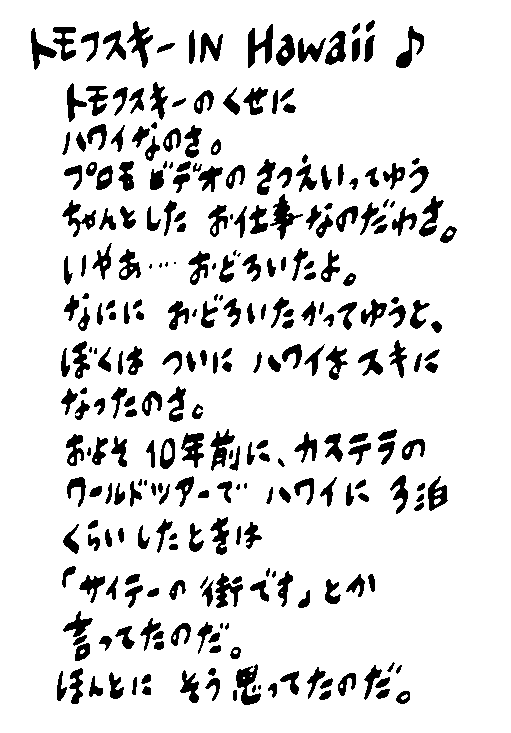 トモフスキー IN Hawaii ♪
トモフスキーのくせに
ハワイなのさ。
プロモビデオのさつえいってゆう
ちゃんとした お仕事なのだわさ。
いやあ… おどろいたよ。
なにに おどろいたかってゆうと、
ぼくは ついに ハワイをスキに
なったのさ。
およそ 10年前に、カステラの
ワールドツアーで ハワイに 3泊
くらいしたときは
「サイテーの街です」とか
言ってたのだ。
ほんとに そう思ってたのだ。